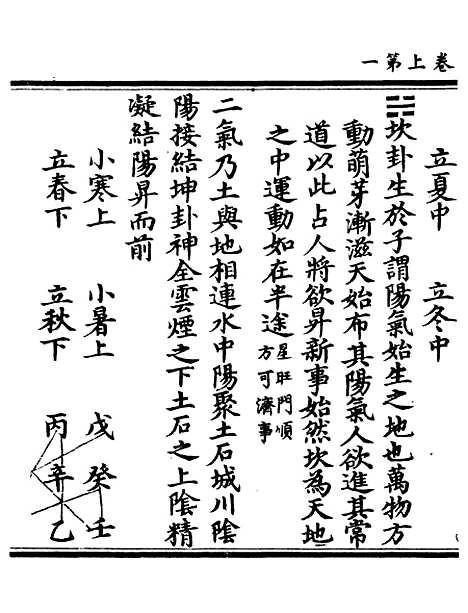 卷上第一
立夏中 立冬中
䷜坎卦生於子謂陽氣始生之地也萬物方
動萌芽漸滋天始布其陽氣人欲進其常
道以此占人將欲昇新事始然坎為天地
之中運動如在半途星旺門順方可濟事
二氣乃土與地相連水中陽聚土石城川陰
陽接結坤卦神全雲煙之下土石之上陰精
凝結陽昇而前
小寒上 小暑上 戊癸壬
立春下 立秋下 丙辛乙